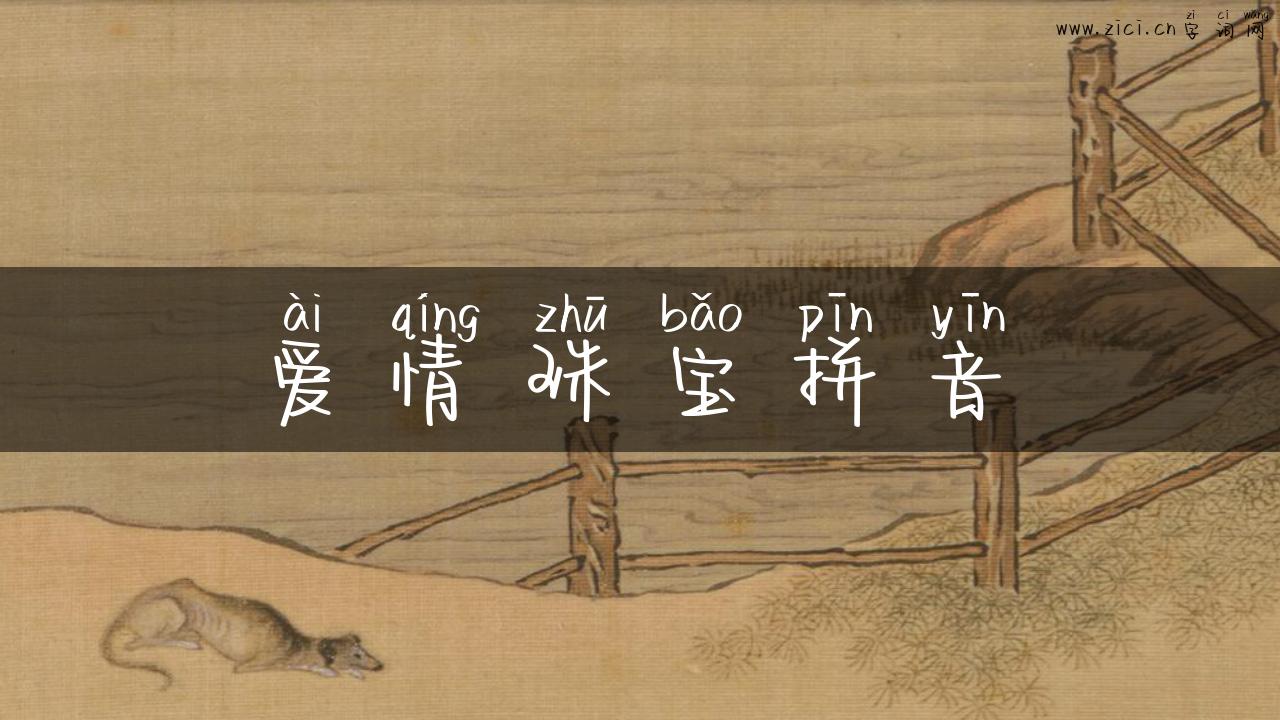 zì cí wǎng
www.zici.cn字词网
ài qíng zhū bǎo pīn yīn
爱情珠宝拼音